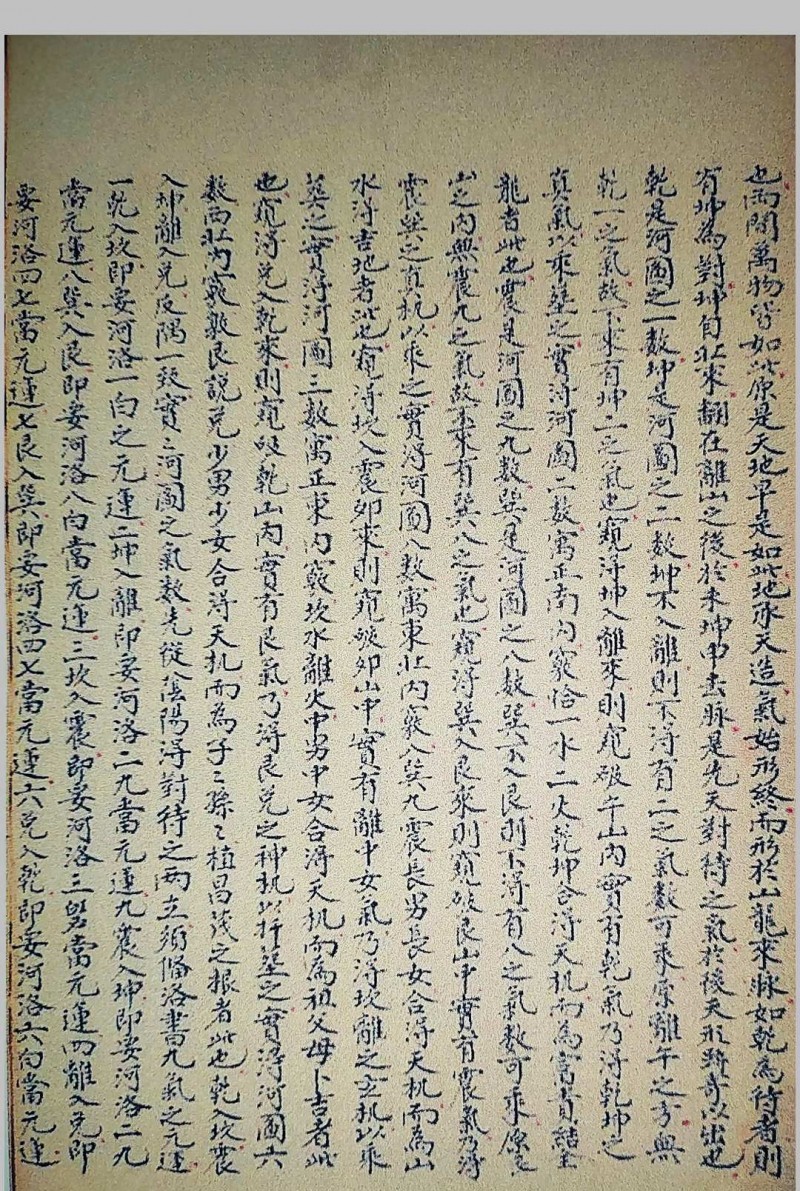 也兩間萬物皆如此原是天地早是如此地承天造氣始形終而形於山龍來脉如乾為待者則
有坤為對坤自北來翻在離山之後於未坤申去脉是先天對待之氣於後天形跡奇以出也
乾是河圖之一數坤是河圖之二數坤不入離則不淂有二之氣數可乘原離午之方無
乾一之氣故下來有坤二之氣也窺淂坤入離來則窺破午山內實有乾氣乃淂乾坤之
真氣以乘塟之實淂河圖二數寓正南內竅恰一水二火乾坤合淂天机而為富貴結全
龍者此也震是河圖之九數巽是河圖之八數巽不入艮則不淂有八之氣數可乘原艮
山之內無震九之氣故下來有巽八之氣也窺淂巽入艮來則窺破艮山中實有震氣乃淂
震巽之真机以乘之實淂河圖八數寓東北內竅入巽九震長男長女合淂天机而為山
水淂吉地者此也窺淂坎入震夘來則窺破夘山中實有離中女氣乃淂坎離之玄机以乘
塟之實淂河圖三數寓正東內竅坎水離火中男中女合淂天机而為祖父母卜吉者此
也窺淂兌入乾來則窺破乾山內實有艮氣乃淂艮兌之神机以扦塟之實淂河圖六
數西北內竅數艮說兌少男少女合淂天机而為子〻孫〻植昌茂之根者此也乾入坎震
入坤離入兌反隅一致實〻河圖之氣數先從陰陽淂對待之両立須俻洛書九氣之元運
一乾入坎即妥河洛一白之元運二坤入離即妥河洛二九當元運九震入坤即妥河洛二九
當元運八巽入艮即妥河洛八白當元運三坎入震即妥河洛三碧當元運四離入兌即
妥河洛四七當元運七艮入巽即妥河洛四七當元運六兌入乾即妥河洛六白當元運